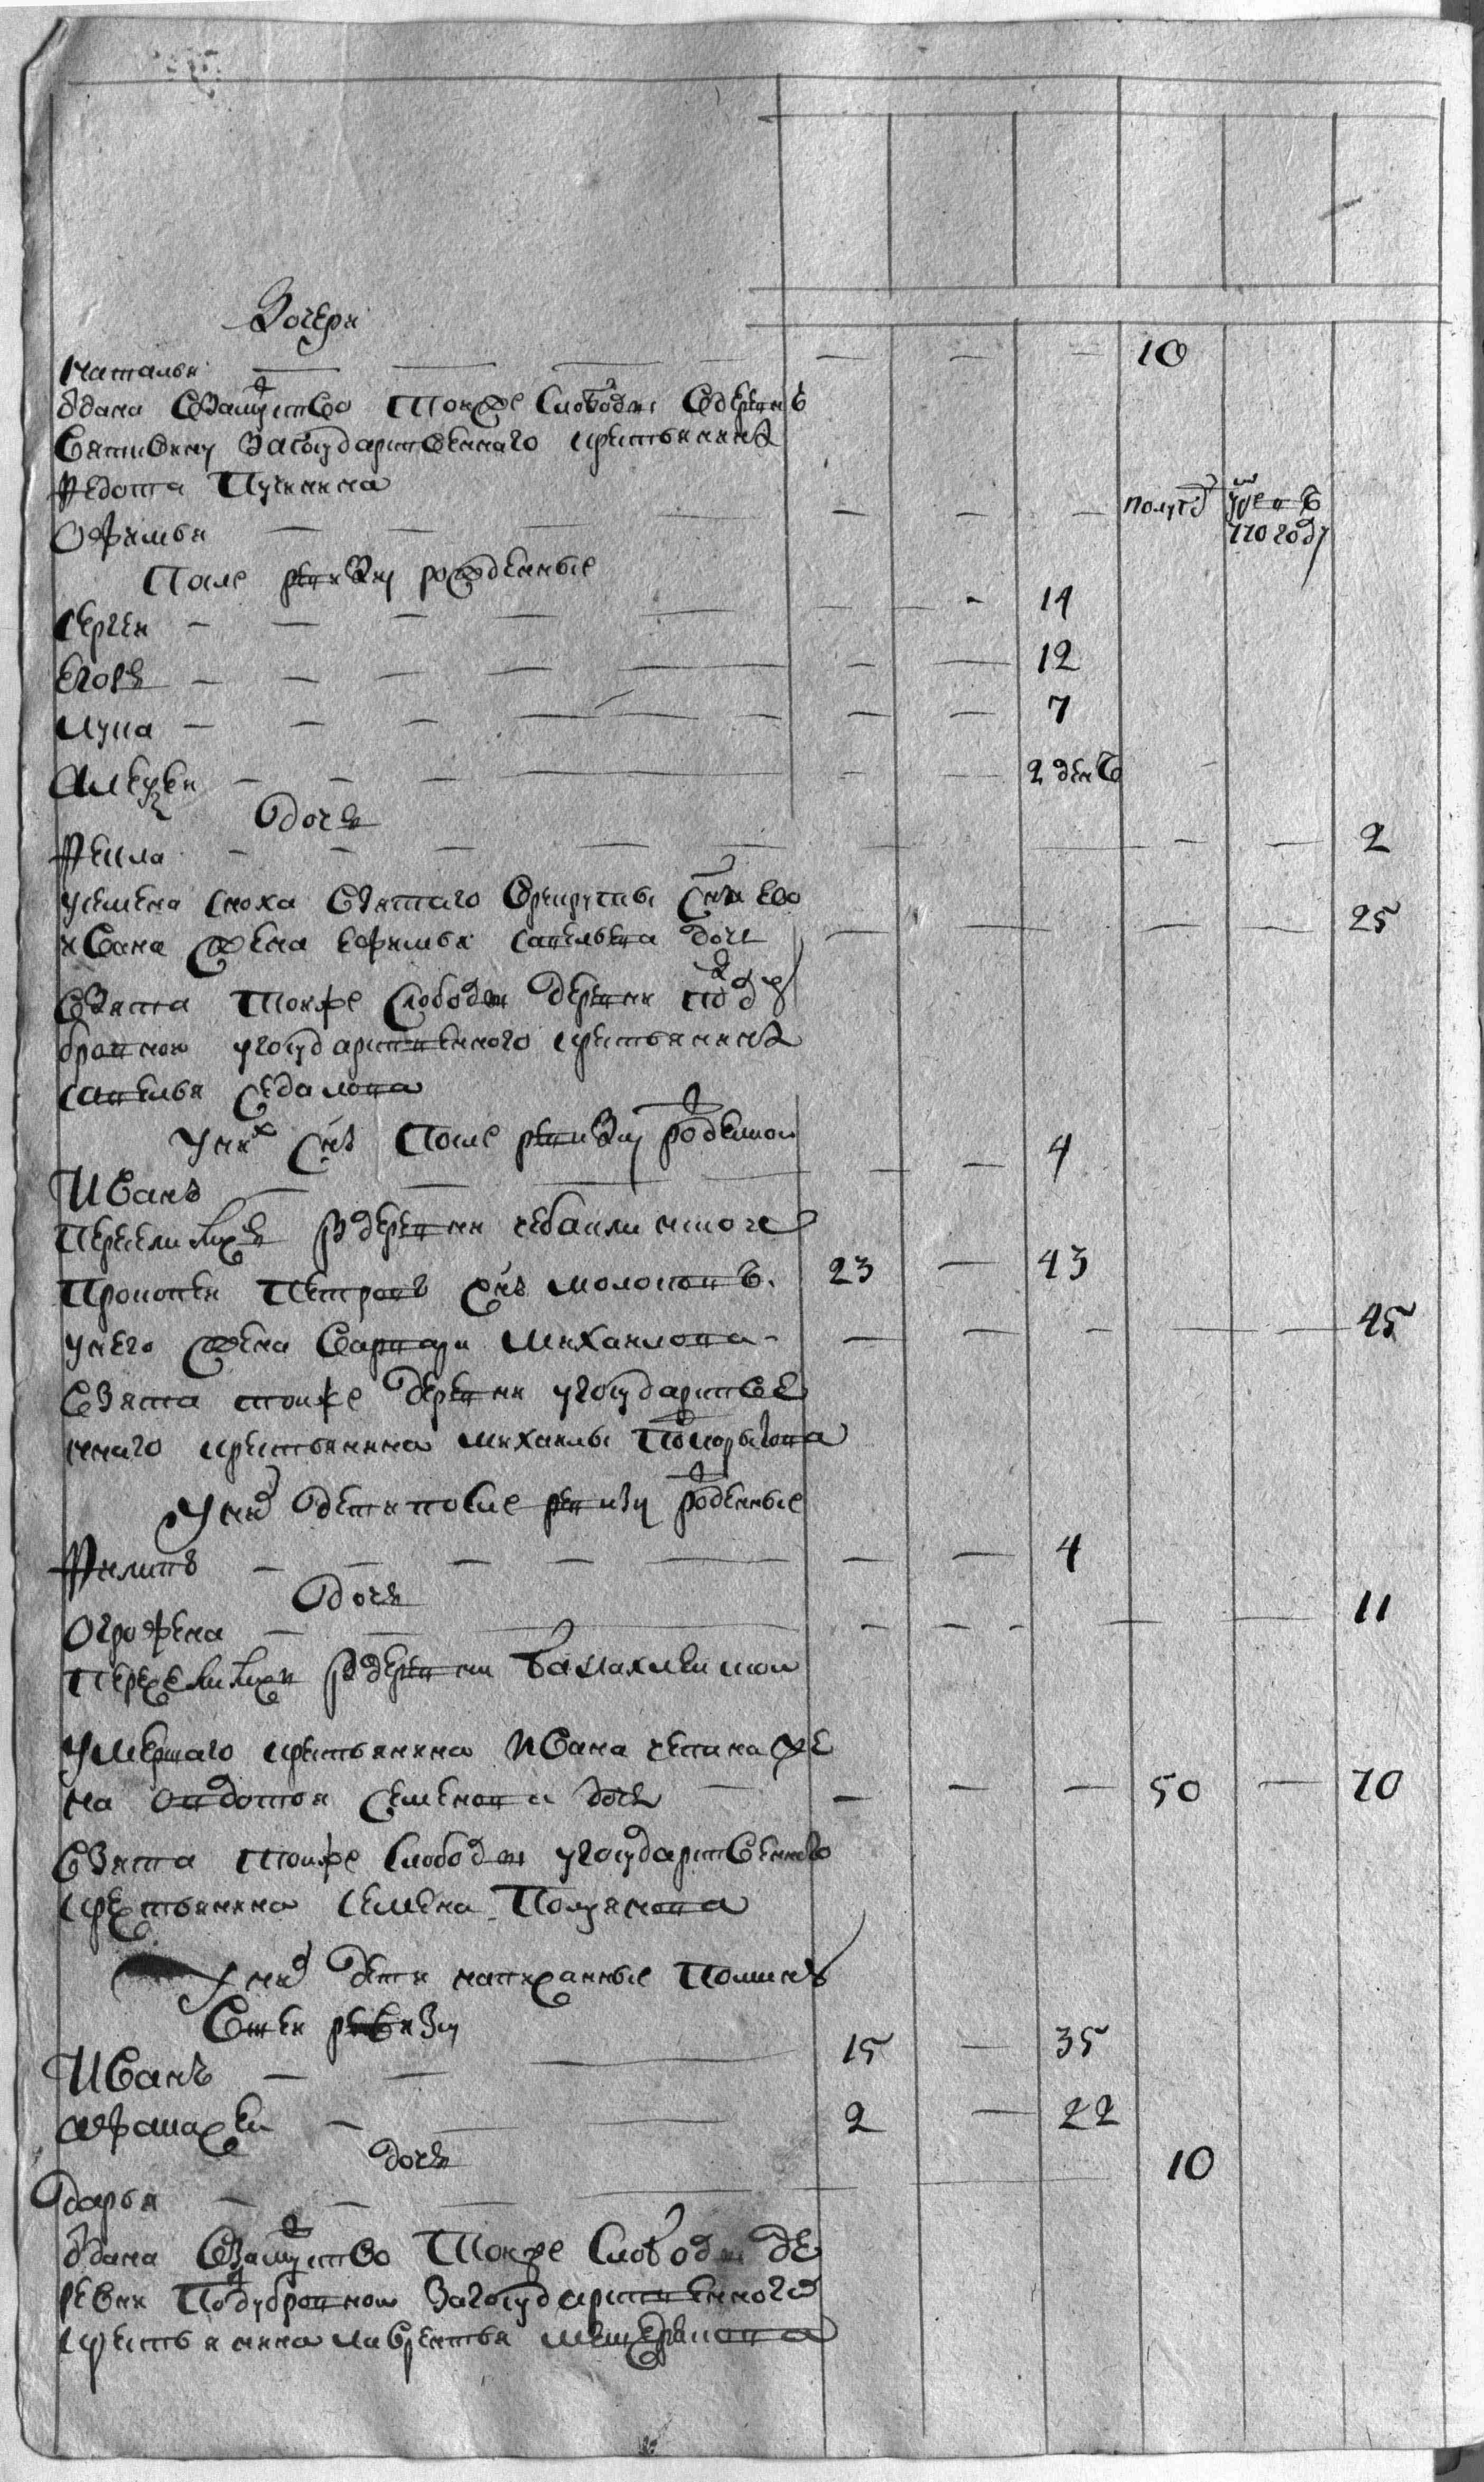 дочери
Наталья — — — — — — — 10
одана Взамужство тойже слободы вдеревнь
Вятиовку За государственнаго крестьянина
Федота Пункина
Офимья — — — — — — полуго умеръ 770 году
После ревизи рожденные
Сергеи — — — — — — — 14
Егоръ — — — — — — — 12
Лупа — — — — — — — 7
Алексеи — — — — — — 2 денъ
дочь
Фекла — — — — — — — 2
уСемена сноха Взятаго Врекруты сына ево
ивана жена Ефимья Савельева дочь — — — — — 25
Взята тойже слободы деревни под
бровной у государственного крестьянина
Савелья Седалова
У них сынъ После ревизи рожденной
Иванъ — — — — — 4
Переселившеися в деревни
Прокофеи Петровъ сынъ Молоковъ. 23 — 43
у него жена Варвара Михаилова — — — — — 45
Взята тойже деревни у государстве
ннаго крестьянина Михаилы
У них дети после ревизи рожденные
Филипъ — — — — — — 4
дочь
Огрофена — — — — — — 11
Переселившеися в деревни
Умершаго крестьянина Ивана жена
на Овдотья Семенова дочь — — — — 50 — 70
Взята тойже слободы у государственного
крестьянина Семена Полуянова
У них дети написанные Польшедъ
Шеи ревизи
Иванъ — — — 15 — 35
Афонасеи — — 2 — 22
дочь
дарья — — — — — — 10
одана Взамужство тойже слободы де
ревни Подубровной За государственного
крестьянина лаврентья Мещерякова